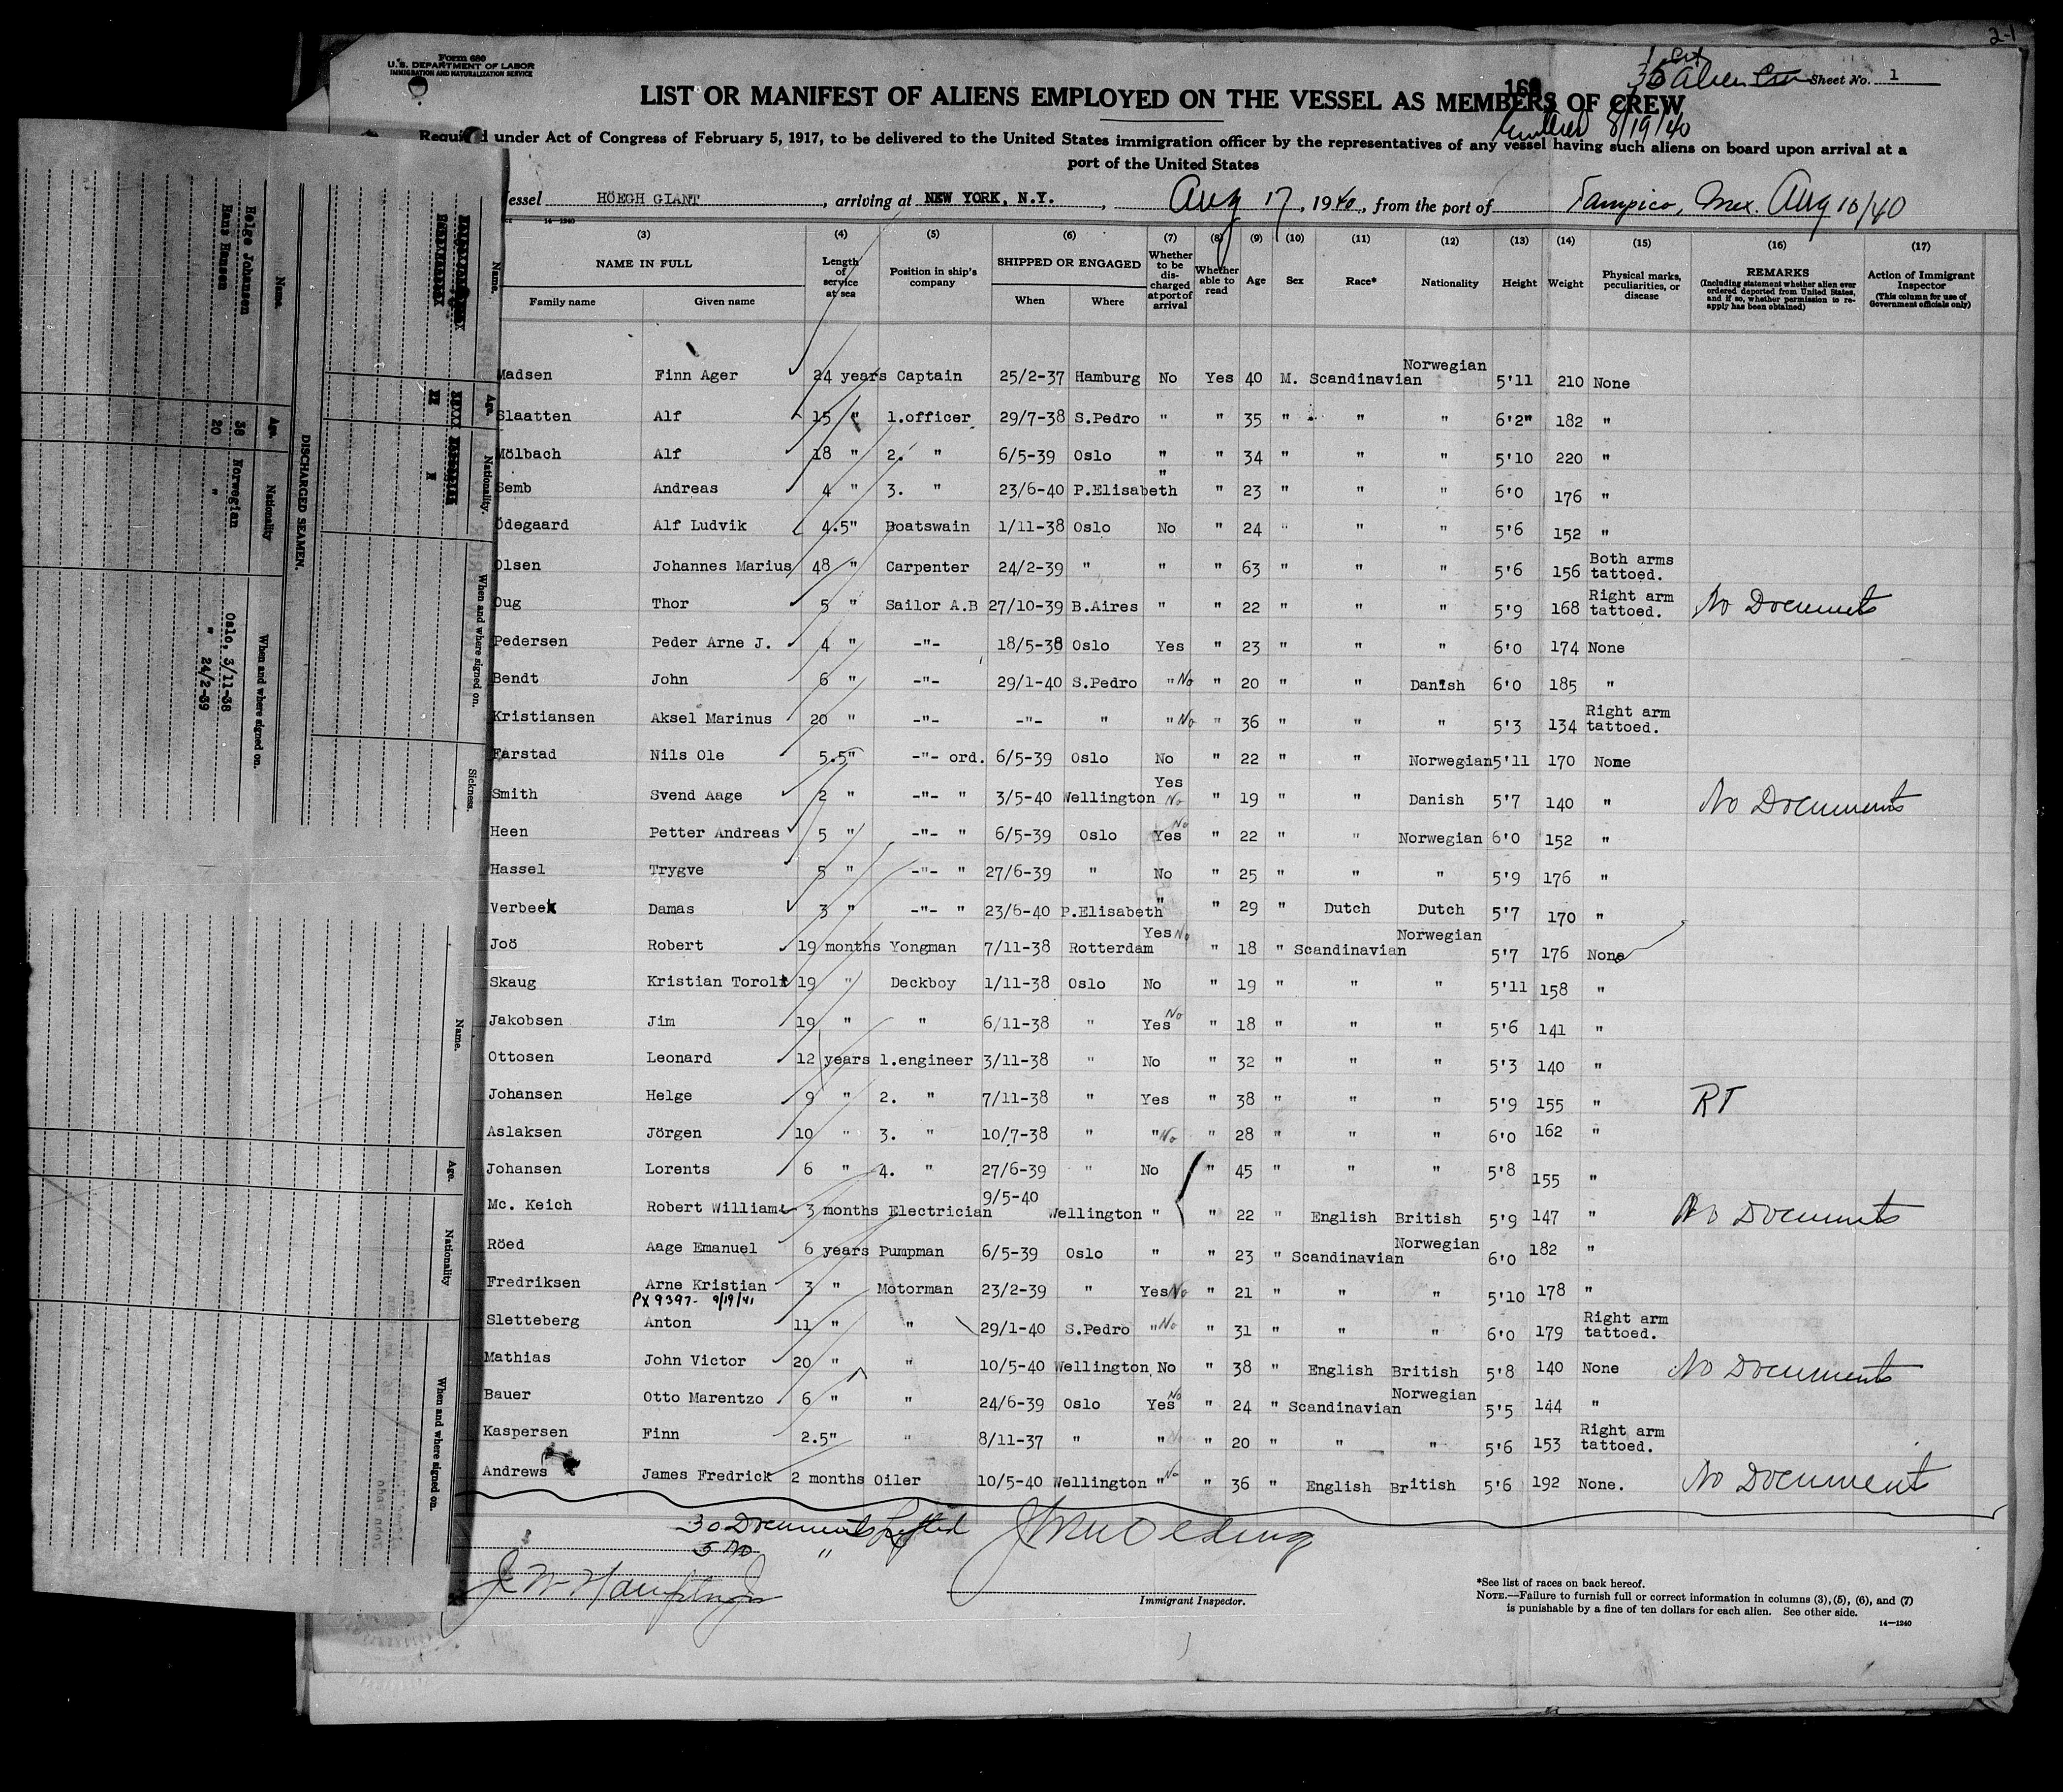 2-1
Form 680
U.S. DEPARTMENT OF LABOR
IMMIGRATION AND NATURALIZATION SERVICE
35 Alien Crew Sheet No. 1
LIST OR MANIFEST OF ALIENS EMPLOYED ON THE VESSEL AS MEMBERS OF CREW
8/19/40
Required under Act of Congress of February 5, 1917, to be delivered to the United States immigration officer by the representatives of any vessel having such aliens on board upon arrival at a
port of the United States
Vessel HÖEGH GIANT, arriving at NEW YORK, N.Y., Aug 17, 1940, from the port of Tampico, Mex. Aug 10/40
14-1240
(3) (4) (5) (6) (7) (8) (9) (10) (11) (12) (13) (14) (15) (16) (17)
NAME IN FULL Length of service at sea Position in ship's company SHIPPED OR ENGAGED Whether to be discharged at port of arrival Whether able to read Age Sex Race* Nationality Height Weight Physical marks, peculiarities, or disease REMARKS (Including statement whether alien ever ordered deported from United States, and if so, whether permission to re-apply has been obtained) Action of Immigrant Inspector (This column for use of Government officials only)
Family name Given name When Where
Madsen Finn Ager 24 years Captain 25/2-37 Hamburg No Yes 40 M. Scandinavian Norwegian 5'11 210 None
Slaatten Alf 15 " 1.officer 29/7-38 S.Pedro " " 35 " " " 6'2" 182 "
Mölbach Alf 18 " 2. " 6/5-39 Oslo " " 34 " " " 5'10 220 "
Semb Andreas 4 " 3. " 23/6-40 P.Elisabeth " " 23 " " " 6'0 176 "
Ödegaard Alf Ludvik 4.5" Boatswain 1/11-38 Oslo No " 24 " " " 5'6 152 "
Olsen Johannes Marius 48 " Carpenter 24/2-39 " " " 63 " " " 5'6 156 Both arms tattoed.
Oug Thor 5 " Sailor A.B 27/10-39 B.Aires " " 22 " " " 5'9 168 Right arm tattoed. No Documents
Pedersen Peder Arne J. 4 " -"- 18/5-38 Oslo Yes " 23 " " " 6'0 174 None
Bendt John 6 " -"- 29/1-40 S.Pedro " No " 20 " " Danish 6'0 185 "
Kristiansen Aksel Marinus 20 " -"- -"- " " No " 36 " " " 5'3 134 Right arm tattoed.
Farstad Nils Ole 5.5" -"- ord. 6/5-39 Oslo No " 22 " " Norwegian 5'11 170 None
Smith Svend Aage 2 " -"- " 3/5-40 Wellington Yes No " 19 " " Danish 5'7 140 " No Documents
Heen Petter Andreas 5 " -"- " 6/5-39 Oslo Yes No " 22 " " Norwegian 6'0 152 "
Hassel Trygve 5 " -"- " 27/6-39 " No " 25 " " " 5'9 176 "
Verbeek Damas 3 " -"- " 23/6-40 P.Elisabeth " " 29 " Dutch Dutch 5'7 170 "
Joö Robert 19 months Yongman 7/11-38 Rotterdam Yes No " 18 " Scandinavian Norwegian 5'7 176 None
Skaug Kristian Torolf 19 " Deckboy 1/11-38 Oslo No " 19 " " " 5'11 158 "
Jakobsen Jim 19 " " 6/11-38 " Yes No " 18 " " " 5'6 141 "
Ottosen Leonard 12 years 1.engineer 3/11-38 " No " 32 " " " 5'3 140 "
Johansen Helge 9 " 2. " 7/11-38 " Yes " 38 " " " 5'9 155 " RT
Aslaksen Jörgen 10 " 3. " 10/7-38 " " No " 28 " " " 6'0 162 "
Johansen Lorents 6 " 4. " 27/6-39 " No " 45 " " " 5'8 155 "
Mc. Keich Robert William 3 months Electrician 9/5-40 Wellington " " 22 " English British 5'9 147 " No Documents
Röed Aage Emanuel 6 years Pumpman 6/5-39 Oslo " " 23 " Scandinavian Norwegian 6'0 182 "
Fredriksen Arne Kristian 3 " Motorman 23/2-39 " Yes No " 21 " " " 5'10 178 "
PX 9397- 9/19/41
Sletteberg Anton 11 " " 29/1-40 S.Pedro " No " 31 " " " 6'0 179 Right arm tattoed.
Mathias John Victor 20 " " 10/5-40 Wellington No " 38 " English British 5'8 140 None No Documents
Bauer Otto Marentzo 6 " " 24/6-39 Oslo Yes No " 24 " Scandinavian Norwegian 5'5 144 "
Kaspersen Finn 2.5" " 8/11-37 " " No " 20 " " " 5'6 153 Right arm tattoed.
Andrews James Fredrick 2 months Oiler 10/5-40 Wellington " No " 36 " English British 5'6 192 None. No Document
30 Documents Lifted
5 No "
Immigrant Inspector.
*See list of races on back hereof.
NOTE.—Failure to furnish full or correct information in columns (3), (5), (6), and (7)
is punishable by a fine of ten dollars for each alien. See other side.
14—1240
DISCHARGED SEAMEN.
Name. Age. Nationality When and where signed on.
Helge Johansen 38 Norwegian Oslo, 3/11-38
Hans Hansen 20 " " 24/2-39
Name. Age. Nationality. When and where signed on. Sickness.
Name. Age. Nationality When and where signed on.